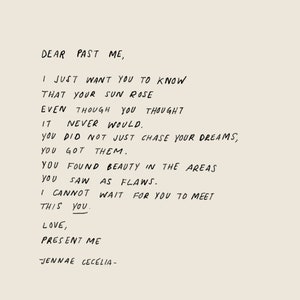 DEAR PAST ME,
I JUST WANT YOU TO KNOW
THAT YOUR SUN ROSE
EVEN THOUGH YOU THOUGHT
IT NEVER WOULD.
YOU DID NOT JUST CHASE YOUR DREAMS,
YOU GOT THEM.
YOU FOUND BEAUTY IN THE AREAS
YOU SAW AS FLAWS.
I CANNOT WAIT FOR YOU TO MEET
THIS YOU.
LOVE,
PRESENT ME
-JENNAE CECELIA-